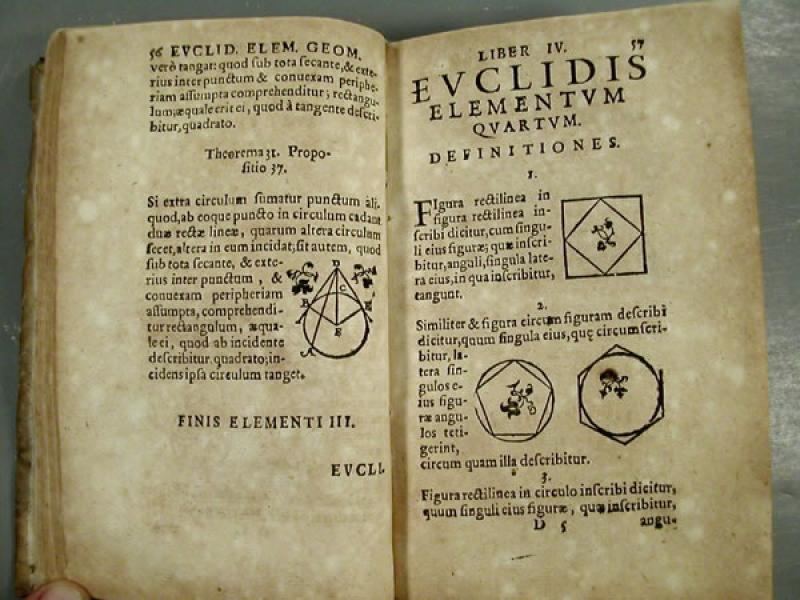 56 EVCLID. ELEM. GEOM.
verò tangat: quod sub tota secante, & exte-
rius inter punctum & conuexam periphe-
riam assumpta comprehenditur; rectangu-
lum, æquale erit ei, quod à tangente descri-
bitur, quadrato.
Theorema 31. Propo-
sitio 37.
Si extra circulum sumatur punctum ali-
quod, ab eoque puncto in circulum cadant
duæ rectæ lineæ, quarum altera circulum
secet, altera in eum incidat; sit autem, quod
sub tota secante, & exte-
rius inter punctum, &
conuexam peripheriam
assumpta, comprehendi-
tur rectangulum, æqua-
le ei, quod ab incidente
describitur quadrato; in-
cidens ipsa circulum tanget.
D
B C E
F
A
FINIS ELEMENTI III.
EVCLI.
LIBER IV. 57
EVCLIDIS
ELEMENTVM
QVARTVM.
DEFINITIONES.
1.
FIgura rectilinea in
figura rectilinea in-
scribi dicitur, cum singu-
li eius figuræ; quæ inscri-
bitur, anguli, singula late-
ra eius, in qua inscribitur,
tangunt.
2.
Similiter & figura circum figuram describi
dicitur, quum singula eius, quę circumscri-
bitur, la-
tera sin-
gulos e-
ius figu-
ræ angu-
los teti-
gerint,
circum quam illa describitur.
3.
Figura rectilinea in circulo inscribi dicitur,
quum singuli eius figuræ, quæ inscribitur,
D 5 angu-